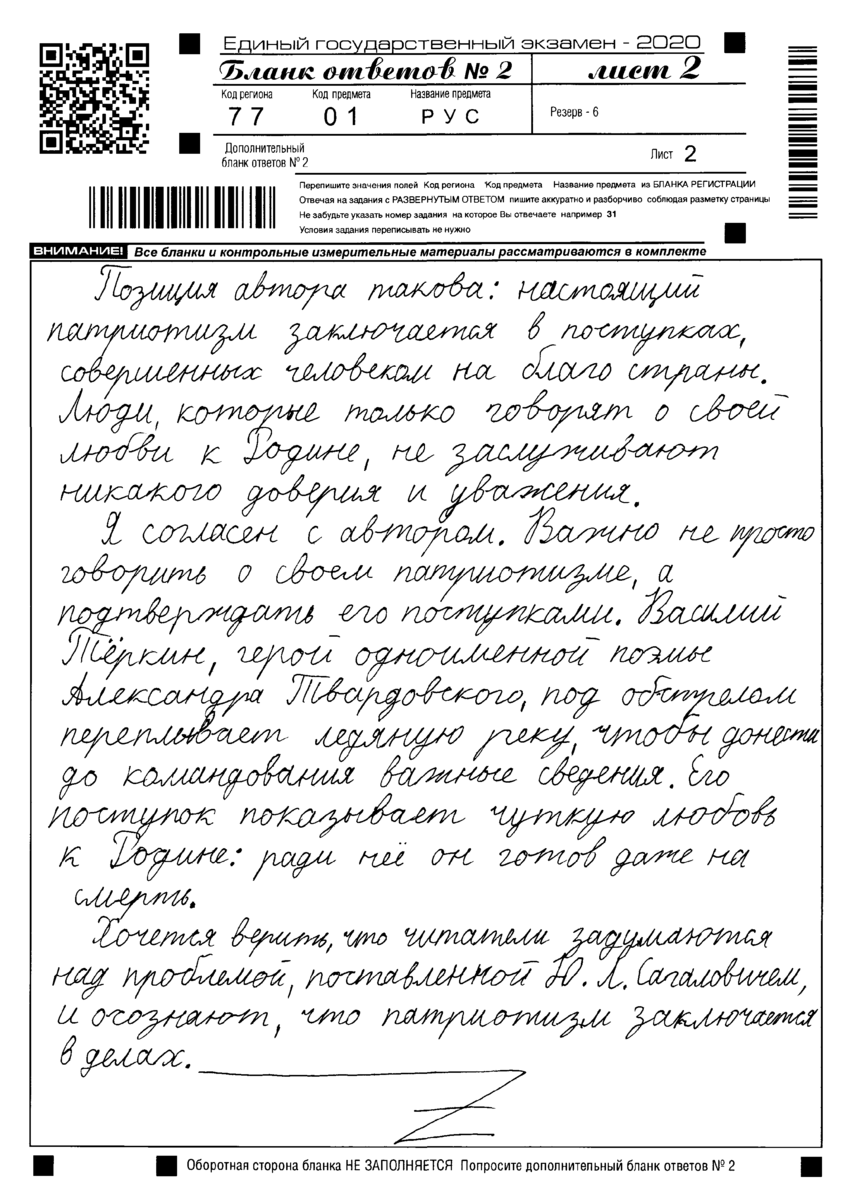 Единый государственный экзамен - 2020
Бланк ответов № 2 лист 2
Код региона Код предмета Название предмета
77 01 РУС Резерв - 6
Дополнительный
бланк ответов № 2 Лист 2
Перепишите значения полей Код региона Код предмета Название предмета из БЛАНКА РЕГИСТРАЦИИ
Отвечая на задания с РАЗВЕРНУТЫМ ОТВЕТОМ пишите аккуратно и разборчиво соблюдая разметку страницы
Не забудьте указать номер задания на которое Вы отвечаете например 31
Условия задания переписывать не нужно
ВНИМАНИЕ! Все бланки и контрольные измерительные материалы рассматриваются в комплекте
Позиция автора такова: настоящий
патриотизм заключается в поступках,
совершенных человеком на благо страны.
Люди, которые только говорят о своей
любви к Родине, не заслуживают
никакого доверия и уважения.
Я согласен с автором. Важно не просто
говорить о своем патриотизме, а
подтверждать его поступками. Василий
Тёркин, герой одноименной поэмы
Александра Твардовского, под обстрелом
переплывает ледяную реку, чтобы донести
до командования важные сведения. Его
поступок показывает чуткую любовь
к Родине: ради неё он готов даже на
смерть.
Хочется верить, что читатели задумаются
над проблемой, поставленной Ю. Л. Сагаловичем,
и осознают, что патриотизм заключается
в делах.
Z
Оборотная сторона бланка НЕ ЗАПОЛНЯЕТСЯ Попросите дополнительный бланк ответов № 2